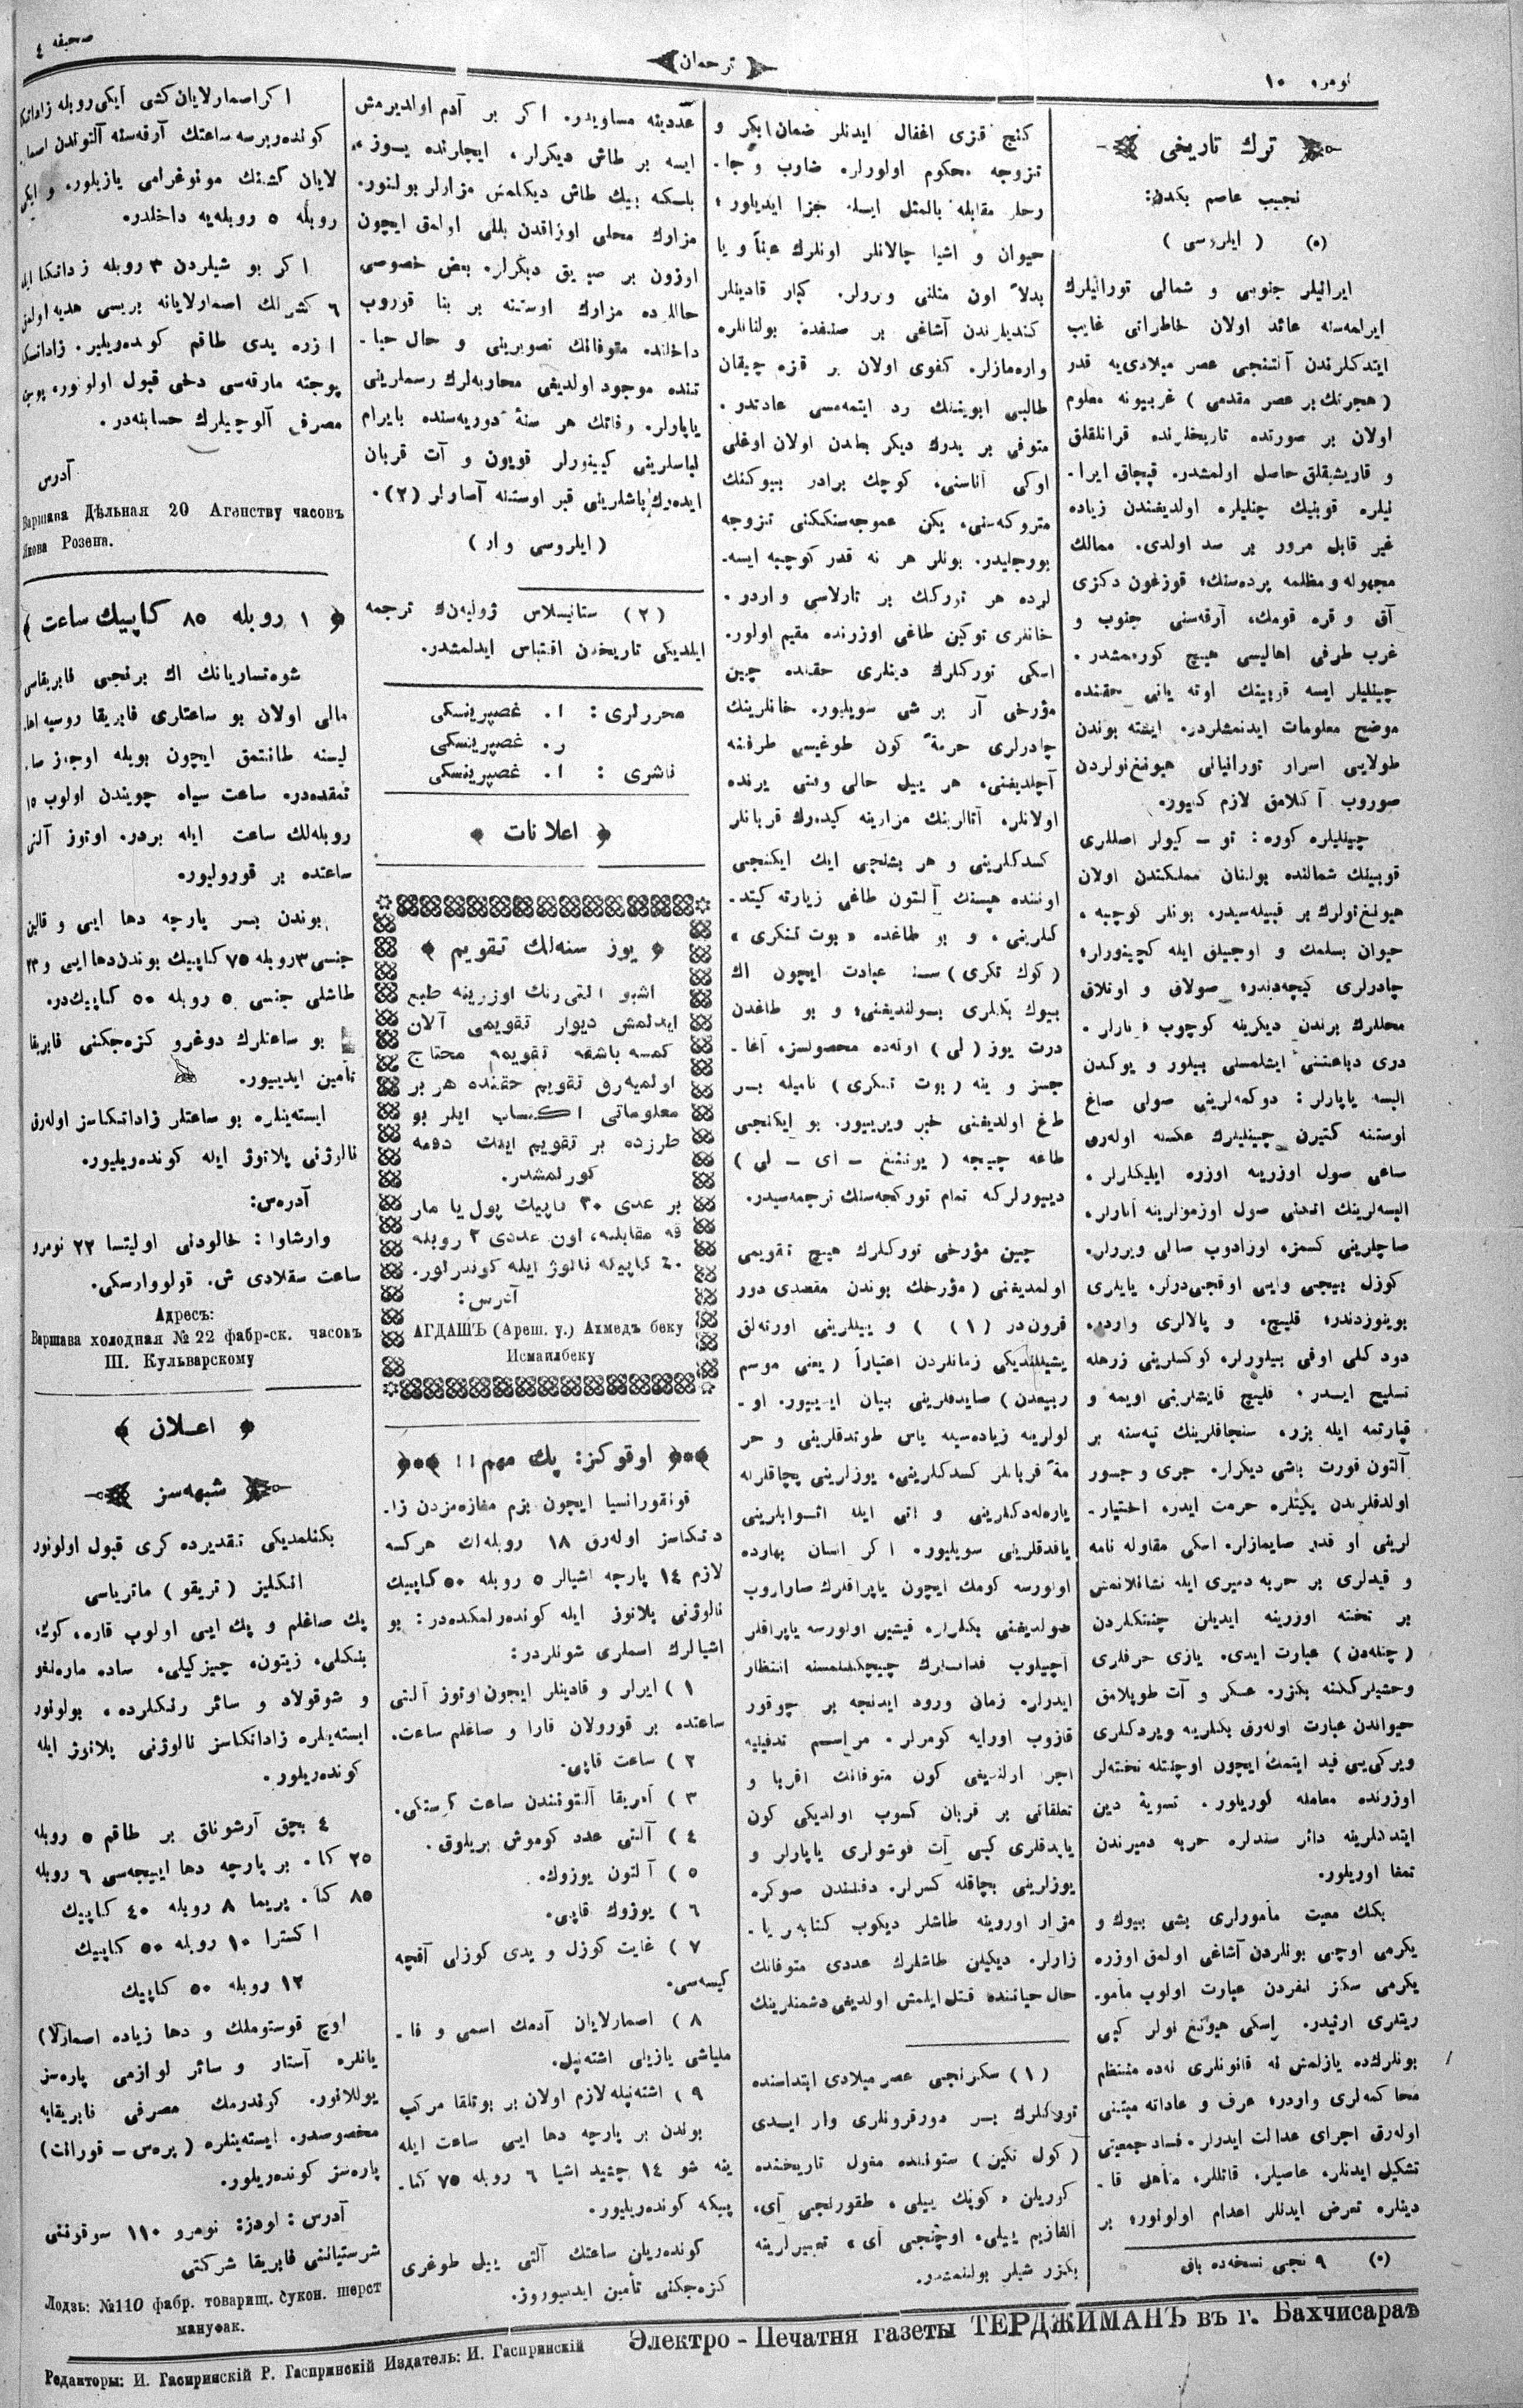 نومرو ١٠
ترجمان
صحيفه ٤
ترك تاريخى
نجيب عاصم بكدن:
(٥) ( ايلروسى )
ايرانيلر جنوبى و شمالى تورانيلرك
ايرامه‌سنه عائد اولان خاطراتى غايب
ايتدكلرندن آلتنجى عصر ميلادى‌يه قدر
(هجرتك بر عصر مقدمى ) غربيونه معلوم
اولان بر صورتده تاريخلرنده قراكلقلق
و قاريشيقلق حاصل اولمشدر. قپچاق ايرا-
نيلره قوبنيك چنليلره اولديغندن زياده
غير قابل مرور بر سد اولدى. ممالك
مجهوله و مظلمه پرده‌سنك، قوزغون دكزى
آق و قره قومك، آرقه‌سنى جنوب و
غرب طرفى اهاليسى هيچ كورمه‌مشدر.
چينليلر ايسه قوبينك اوته يانى حقنده
موضح معلومات ايدنمشلردر. ايشته بوندن
طولايى اسرار تورانيانى هيونغ‌نولردن
صوروب آكلامق لازم كليور.
چينليلره كوره: تو – كيولر اصللرى
قوبينك شمالنده بولنان مملكتدن اولان
هيونغ‌نولرك بر قبيله‌سيدر. بونلر كوچبه،
حيوان بسلمك و اوجيلق ايله كچينورلر؛
چادرلرى كيچه‌دندر؛ صولاق و اوتلاق
محللرك برندن ديكرينه كوچوب قونارلر.
درى دباغتنى ايشلمسنى بيلور و يوكدن
البسه ياپارلر: دوكمه‌لرينى صولى صاغ
اوستنه كتيرن چينليلرك عكسنه اوله‌رق
ساغى صول اوزرينه اوزره ايليكلرلر.
صاچلرينى كسمز، اوزادوب صالى ويررلر.
كوزل بينجى و ايى اوقجى‌درلر. يايلرى
بوينوزدندر؛ قليچ، و پالالرى واردر.
تسليح ايدر. قليچ قايشلرينى اويمه و
قپارتمه ايله بزر. سنجاقلرينك تپه‌سنه بر
آلتون قورت باشى ديكرلر. جرى و جسور
اولدقلرندن يكيتلره حرمت ايدر. اختيار-
لرينى او قدر صايمازلر. اسكى مقاوله نامه
و قيدلرى بر حربه دميرى ايله نشانلانمش
بر تخته اوزرينه ايديلن چنتكلردن
(چتله‌دن) عبارت ايدى. يازى حرفلرى
وحشيلركنه بكزر. عسكر و آت طوپلامق
حيواندن عبارت اوله‌رق بكلرينه ويردكلرى
ويركى‌يى قيد ايتمك ايچون اوچتله تخته‌لر
اوزرنده معامله كوريلور. تسويهٔ دين
ايتدكلرينه دائر سندلره حربه دميرندن
تمغا اوريلور.
بكك معيت مأمورلرى بشى بيوك و
يكرمى اوچى بونلردن آشاغى اولمق اوزره
يكرمى سكز نفردن عبارت اولوب مأمو-
ريتلرى ارثيدر. اسكى هيونغ نولر كبى
بونلرك‌ده يازلمش نه قانونلرى نه‌ده منتظم
محاكمه‌لرى واردر؛ عرف و عاداته مبتنى
اوله‌رق اجراى عدالت ايدرلر. فساد جمعيتى
تشكيل ايدنلر، عاصيلر، قاتللر، متأهل قا-
دينلره تعرض ايدنلر اعدام اولونور؛ بر
(٥) ٩ نجى نسخه‌ده باق
كنج قزى اغفال ايدنلر ضمان ايكر و
تزوجه محكوم اولورلر. ضارب و جا-
رحلر مقابله بالمثل ايله جزا ايديلور؛
حيوان و اشيا چالانلر اونلرك عيناً و يا
بدلاً اون مثلنى ويررلر. كبار قادينلر
كنديلرندن آشاغى بر صنفده بولنانلره
وارمازلر. كفوى اولان بر قزه چيقان
طالبى ابوينك رد ايتمه‌مسى عادتدر.
متوفى بر پدرك ديكر بطندن اولان اوغلى
اوكى آناسنى، كوچك برادر بيوكنك
متروكه‌سنى، يكن عموجه‌سنككنى تزوجه
بورجليدر. بونلر هر نه قدر كوچبه ايسه-
لرده هر توركك بر تارلاسى واردر.
خانلرى توكين طاغى اوزرنده مقيم اولور.
اسكى توركلرك دينلرى حقنده چين
مؤرخى آز بر شى سويليور. خانلرينك
چادرلرى حرمةً كون طوغيسى طرفنه
آچلديغنى، هر ييل حالى وقتى يرنده
اولانلر، آتالرينك مزارينه كيده‌رك قربانلر
كسدكلرينى و هر بشنجى آيك ايكنجى
اوننده هپسنك آلتون طاغى زيارته كيتد-
كلرينى، و بو طاغده «بوت تنكرى»
(كوك تكرى) سنه عبادت ايچون اك
بيوك بكلرى بولنديغنى؛ و بو طاغدن
درت يوز (لى) اوته‌ده محصولسز، آغا-
جسز و ينه (بوت تنكرى) ناميله بر
طاغ اولديغنى خبر ويرييور. بو ايكنجى
طاغه چينجه ( يوننغ – اى – لى )
دييورلركه تمام توركجه‌سنك ترجمه‌سيدر.
چين مؤرخى توركلرك هيچ تقويمى
اولمديغنى (مؤرخك بوندن مقصدى دور
قروندر (١) ) و ييللرينى اورته‌لق
يشيللنديكى زمانلردن اعتباراً (يعنى موسم
ربيعدن) صايدقلرينى بيان ايدييور. او-
لولرينه زياده‌سيله ياس طوتدقلرينى و حر
مةً قربانلر كسدكلرينى، يوزلرينى بچاقلرله
ياره‌له‌دكلرينى و آتى ايله اثوابلرينى
ياقدقلرينى سويليور. اكر انسان بهارده
اولورسه كومك ايچون ياپراقلرك صاراروب
صولديغنى بكلرلر، قيشين اولورسه ياپراقلر
آچيلوب فدانلرك چيچكلنمسنه انتظار
ايدرلر. زمان ورود ايدنجه بر چوقور
قازوب اورايه كومرلر. مراسم تدفينيه
اجرا اولنديغى كون متوفانك اقربا و
تعلقاتى بر قربان كسوب اولديكى كون
ياپدقلرى كبى آت قوشولرى ياپارلر و
يوزلرينى بچاقله كسرلر. دفنندن صوكره
مزار اوزرينه طاشلر ديكوب كتابه‌لر يا-
زارلر. ديكيلن طاشلرك عددى متوفانك
حال حياتنده قتل ايلمش اولديغى دشمنلرينك
(١) سكزنجى عصر ميلادى ابتداسنده
توركلرك بر دورقرونلرى وار ايدى
(كول تكين) ستوننده مغول تاريخنده
كوريلن «كوپك ييلى، طقوزنجى آى،
الغازيم ييلى، اوچنجى آى» تعبيرلرينه
بكزر شيلر بولنمشدر.
عددينه مساويدر. اكر بر آدم اولديرمش
ايسه بر طاش ديكرلر، ايچلرنده يوز،
بلكه بيك طاش ديكلمش مزارلر بولنور.
مزارك محلى اوزاقدن بللى اولمق ايچون
اوزون بر صيريق ديكرلر. بعض خصوصى
حاللرده مزارك اوستنه بر بنا قوروب
داخلنده متوفانك تصويرينى و حال حيا-
تنده موجود اولديغى محاربه‌لرك رسملرينى
ياپارلر. وفاتك هر سنهٔ دوريه‌سنده بايرام
لباسلرينى كيينورلر قويون و آت قربان
ايده‌رك باشلرينى قبر اوستنه آصارلر (٢).
( ايلروسى وار )
(٢) ستانيسلاس ژوليه‌نك ترجمه
ايلديكى تاريخدن اقتباس ايدلمشدر.
محررلرى: ا. غصپرينسكى
ر. غصپرينسكى
ناشرى : ا. غصپرينسكى
اعلانات
يوز سنه‌لك تقويم
اشبو آلتى‌رنك اوزرينه طبع
ايدلمش ديوار تقويمى آلان
كمسه باشقه تقويمه محتاج
اولميه‌رق تقويم حقنده هر بر
معلوماتى اكتساب ايلر بو
طرزده بر تقويم ايلك دفعه
كورلمشدر.
بر عددى ٣٠ كاپيك پول يا مار
قه مقابلنه، اون عددى ٢ روبله
٤٠ كاپيكه نالوژ ايله كوندرلور.
آدرس:
АГДАШЪ (Ареш. у.) Ахмедъ беку
Исмаилбеку
اوقوكز: پك مهم!!
قونقورانسيا ايچون بزم مغازه‌مزدن زا-
داتكاسز اوله‌رق ١٨ روبله‌لك هركسه
لازم ١٤ پارچه اشيالر ٥ روبله ٥٠ كاپيك
نالوژنى پلاتوژ ايله كوندرلمكده‌در: بو
اشيالرك اسملرى شونلردر:
١) ايرلر و قادينلر ايچون اوتوز آلتى
ساعتده بر قورولان قارا و صاغلم ساعت.
٢) ساعت قابى.
٣) آمريقا آلتونندن ساعت كوستكى.
٤) آلتى عدد كوموش بريلوق.
٥) آلتون يوزوك.
٦) يوزوك قابى.
٧) غايت كوزل و يدى كوزلى آقچه
كيسه‌سى.
٨) اصمارلايان آدمك اسمى و فا-
ملياشى يازيلى اشته‌نپل.
٩) اشته‌نپله لازم اولان بر بوتلقا مركب
بوندن بر پارچه دها ايى ساعت ايله
ينه شو ١٤ چشيد اشيا ٦ روبله ٧٥ كا-
پيكه كوندريليور.
كوندريلن ساعتك آلتى ييل طوغرى
كزه‌جكنى تأمين ايدييوروز.
اكر اصمارلايان كشى ايكى روبله زاداتكا
كوندررسه ساعتك آرقه‌سنه آلتوندن اصمار
لايان كشينك مونوغرامى يازيلور. و ايكى
روبله ٥ روبله‌يه داخلدر.
اكر بو شيلردن ٣ روبله زاداتكا ايله
٦ كشى‌لك اصمارلايانه بريسى هديه اولمق
اوزره يدى طاقم كوندريلير. زاداتكا
پوچته مارقه‌سى دخى قبول اولونور. پوچتا
مصرفى آلوچيلرك حسابنه‌در.
آدرس
Варшава Дѣльная 20 Агенству часовъ
Якова Розена.
١ روبله ٨٥ كاپيك ساعت
شوه‌تساريانك اك برنجى فابريقاسى
مالى اولان بو ساعتلرى فابريقا روسيه اها
ليسنه طانتمق ايچون بويله اوجوز صا-
تمقده‌در. ساعت سياه چويندن اولوب ١٥
روبله‌لك ساعت ايله بردر. اوتوز آلتى
ساعتده بر قورولور.
بوندن بر پارچه دها ايى و قالين
جنسى ٣ روبله ٧٥ كاپيك بوندن دها ايى و ٢٣
طاشلى جنسى ٥ روبله ٥٠ كاپيك‌در.
بو ساعتلرك دوغرو كزه‌جكنى فابريقا
تأمين ايدييور.
ايسته‌ينلره بو ساعتلر زاداتكاسز اوله‌رق
نالوژنى پلاتوژ ايله كوندريليور.
آدرس:
وارشاوا: خالودنى اوليتسا ٢٢ نومرو
ساعت سقلادى ش. قولووارسكى.
Адресъ:
Варшава холодная №22 фабр-ск. часовъ
Ш. Кульварскому
اعلان
شبهه‌سز
بكنلمديكى تقديرده كرى قبول اولونور
انكليز (تريقو) ماترياسى
پك صاغلم و پك ايى اولوب قاره، كوك،
بنكلى، زيتون، چيزكيلى، ساده مارەنغو
و شوقولاد و سائر رنكلرده، بولونور
ايسته‌ينلره زاداتكاسز نالوژنى پلاتوژ ايله
كوندريلور.
٤ بچق آرشونلق بر طاقم ٥ روبله
٢٥ كا. بر پارچه دها اييجه‌سى ٦ روبله
٨٥ كا. پريما ٨ روبله ٤٠ كاپيك
اكسترا ١٠ روبله ٥٠ كاپيك
١٢ روبله ٥٠ كاپيك
اوچ قوستوملك و دها زياده اصمارلا
يانلره آستار و سائر لوازمى پاره‌سز
يوللانور. كوندرمك مصرفى فابريقايه
مخصوصدر. ايسته‌ينلره (پره‌س – قورانت)
پاره‌سز كوندريلور.
آدرس: لودز: نومرو ١١٠ سوقوننى
شرستيانتى فابريقا شركتى
Лодзь: №110 фабр. товарищ. сукон. шерст
мануфак.
Редакторы: И. Гаспринскій Р. Гаспринскій Издатель: И. Гаспринскій
Электро - Печатня газеты ТЕРДЖИМАНЪ въ г. Бахчисараѣ